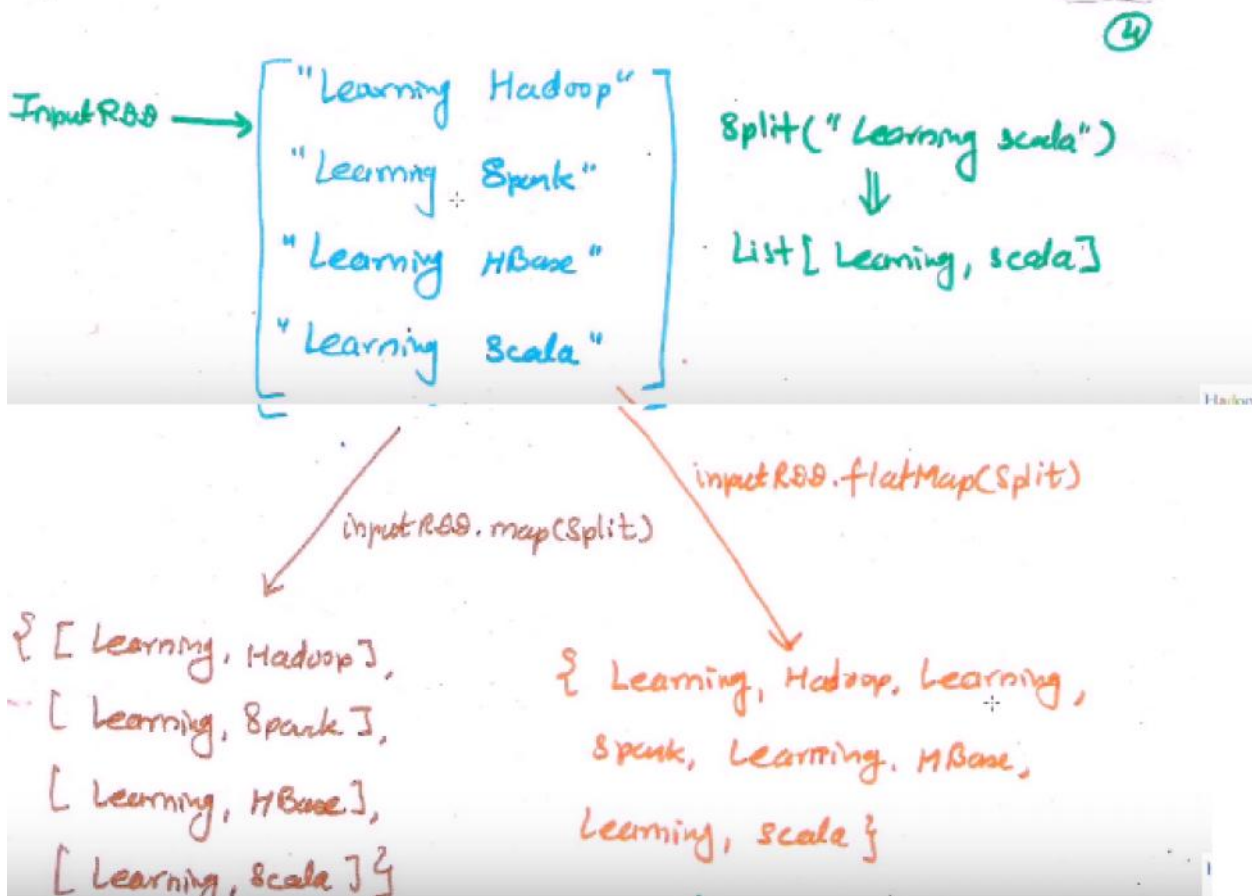 4
InputRDD →
"Learning Hadoop"
"Learning Spark"
"Learning HBase"
"Learning Scala"
Split("Learning scala")
⇓
List[Learning, scala]
inputRDD.map(Split)
inputRDD.flatMap(Split)
{ [ Learning, Hadoop],
[ Learning, Spark ],
[ Learning, HBase],
[ Learning, Scala ] }
{ Learning, Hadoop, Learning,
Spark, Learning, HBase,
Learning, scala }